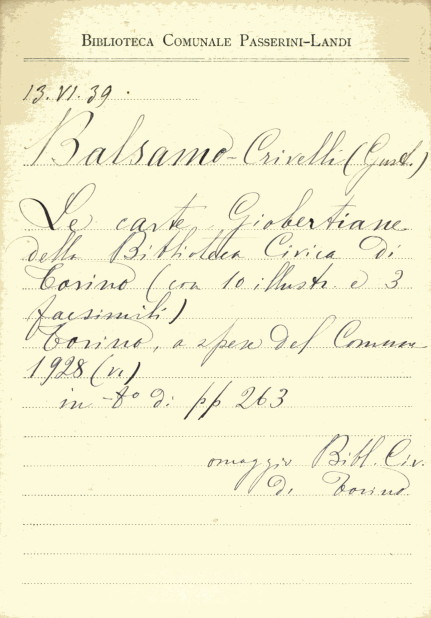 BIBLIOTECA COMUNALE PASSERINI-LANDI
13.VI.39.
Balsamo-Crivelli (Gust.)
Le carte Giobertiane
della Biblioteca Civica di
Torino (con 10 illustr. e 3
facsimili)
Torino, a spese del Comune
1928 (VI)
in-8° di pp 263
omaggio Bibl. Civ.
di Torino.